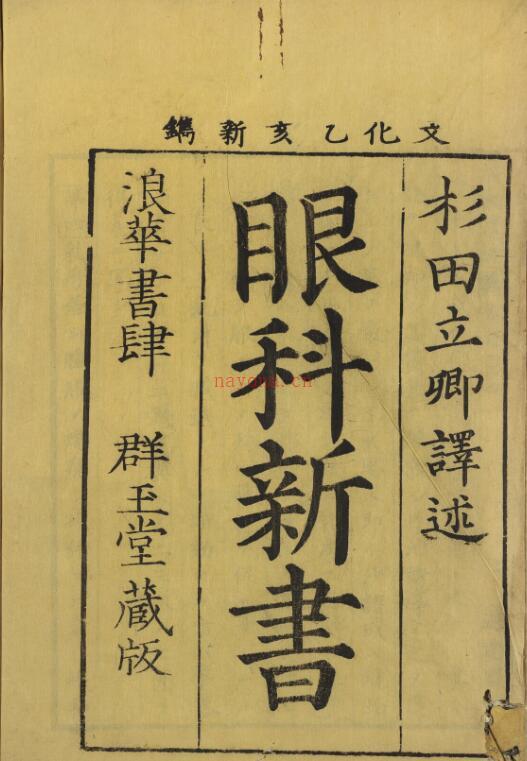 文化乙亥新鐫
杉田立卿譯述
眼科新書
浪華書肆 群玉堂蔵版
nayona.cn